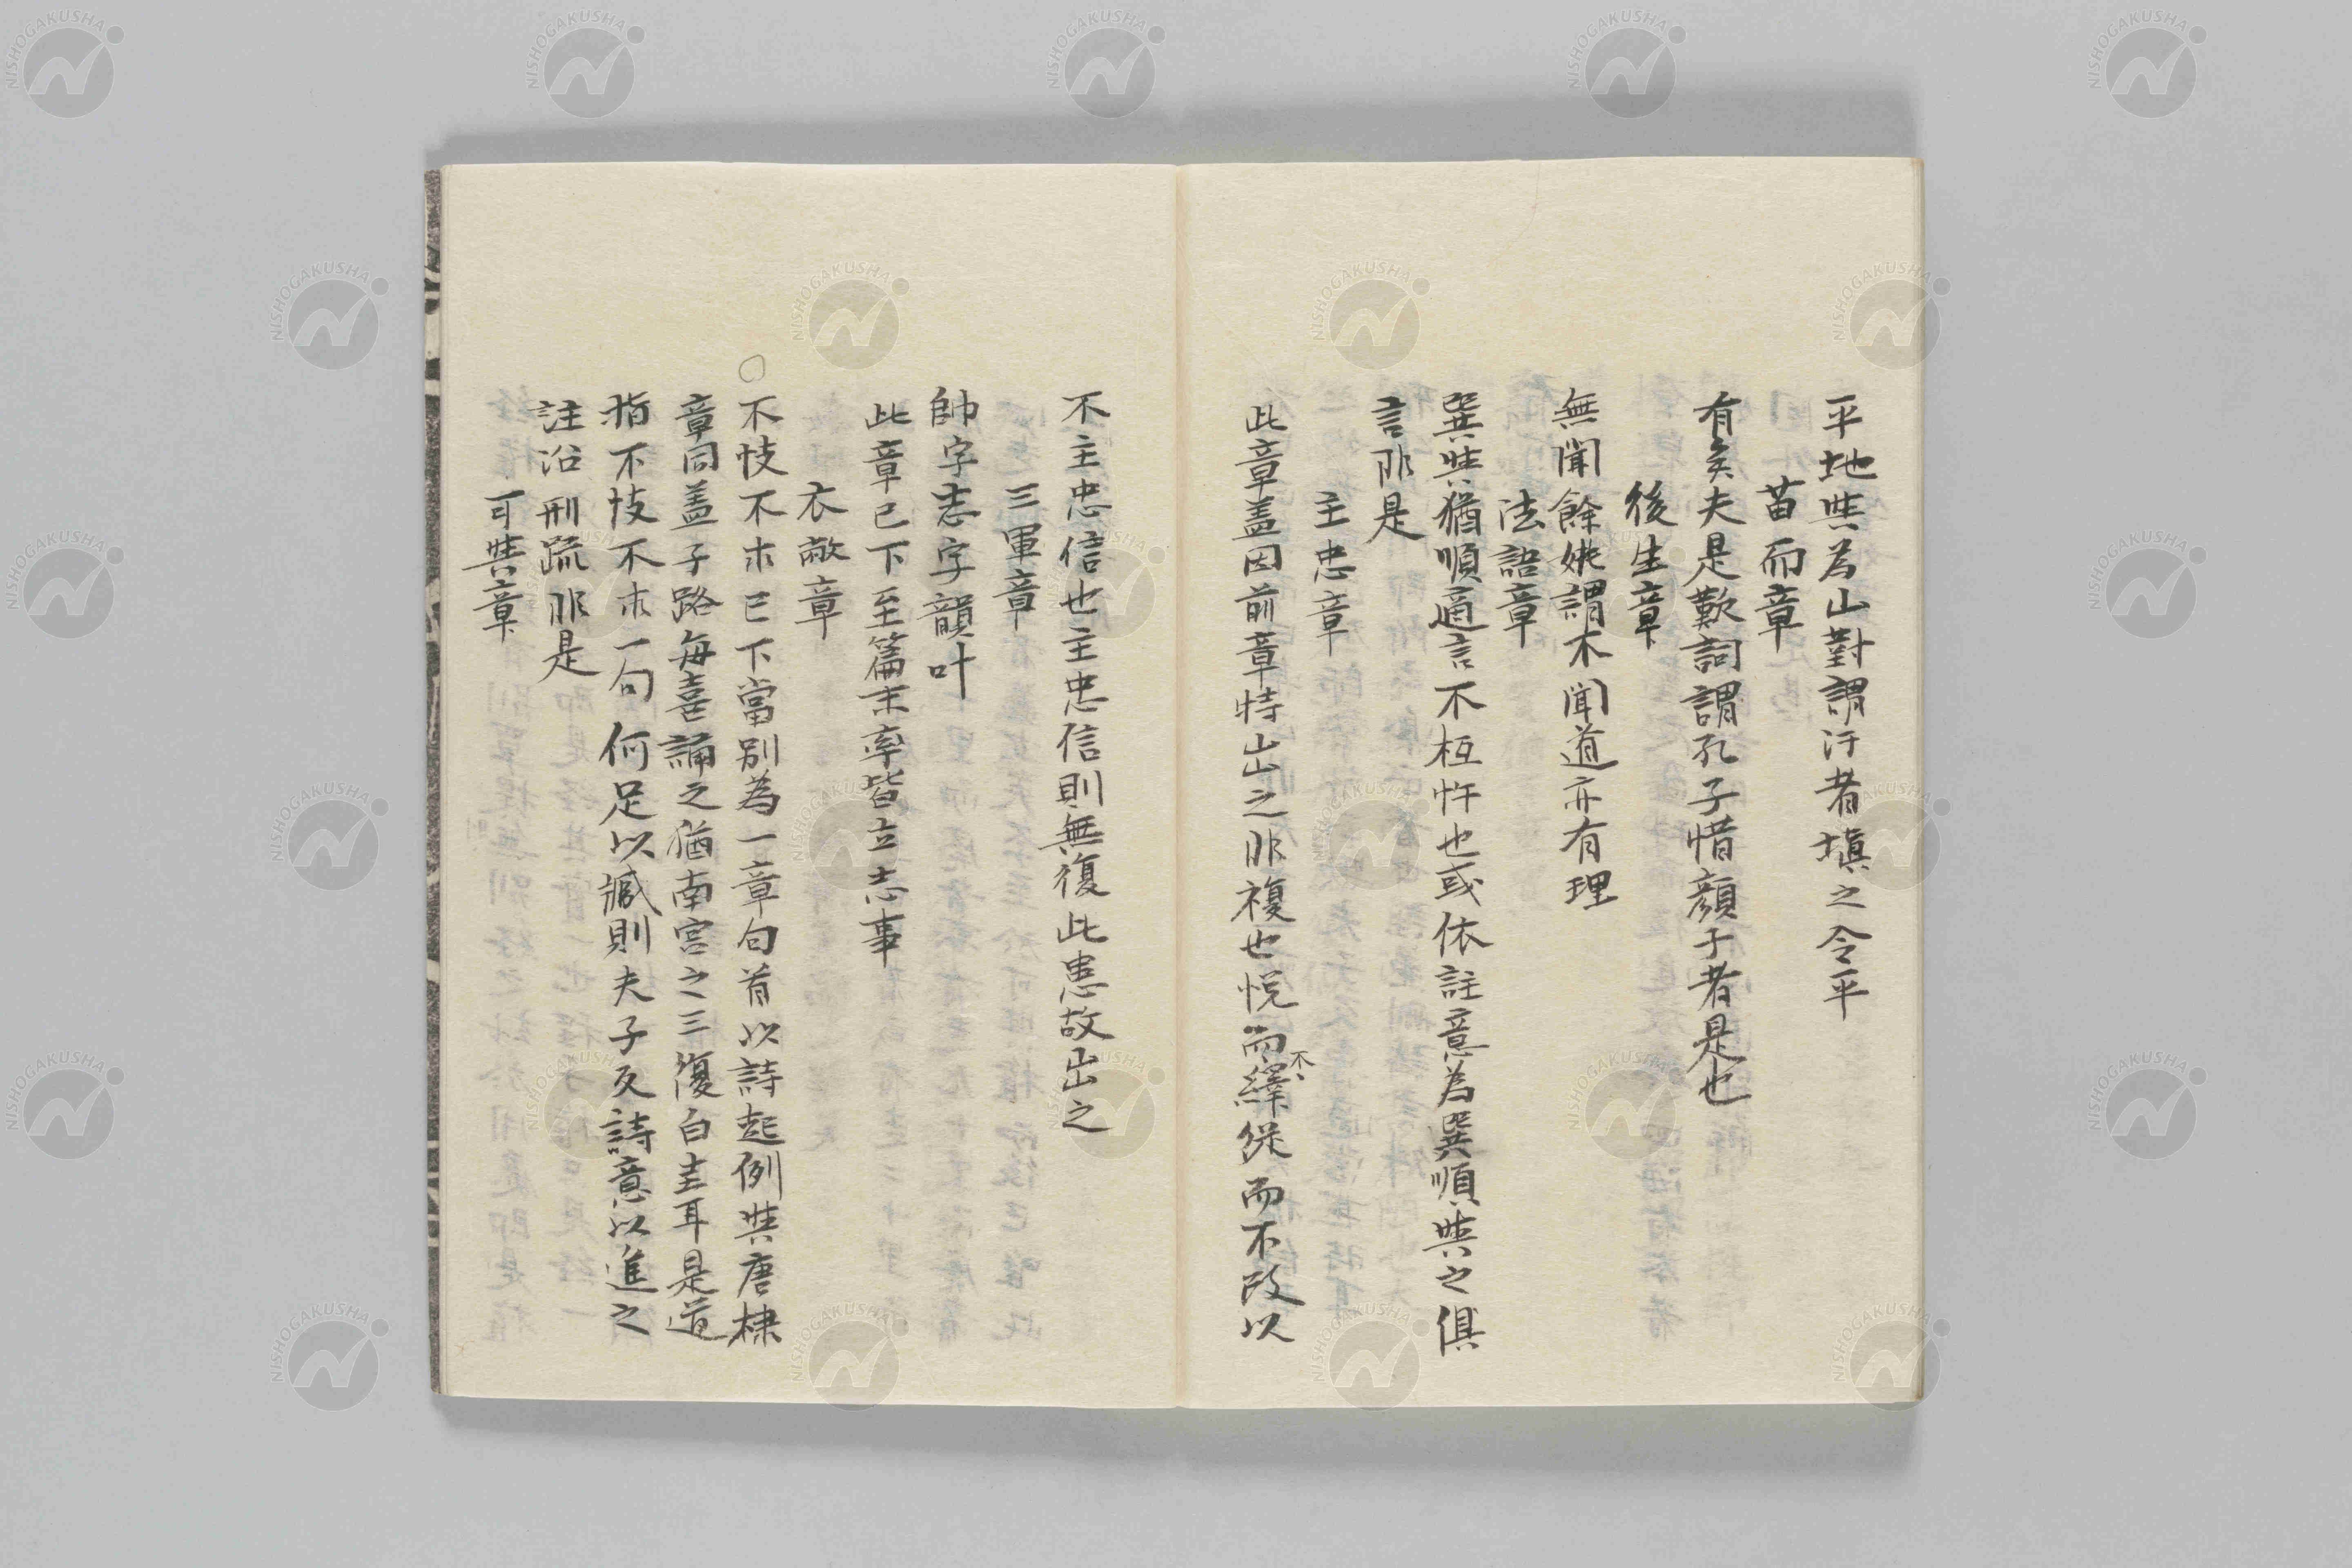 平地與為山對謂汙者塡之令平
苗而章
有矣夫是歎詞謂孔子惜顔子者是也
後生章
無聞餘姚謂不聞道亦有理
法語章
巽與猶順適言不枉忤也或依註意為巽順與之俱
言非是
主忠章
此章盖因前章特出之非複也悦而不繹從而不改以
不主忠信也主忠信則無復此患故出之
三軍章
帥字志字韻叶
此章已下至篇末率皆立志事
衣敝章
○不忮不求已下當別為一章句首以詩起例與唐棣
章同盖子路每喜誦之猶南宮之三復白圭耳是道
指不忮不求一句何足以臧則夫子反詩意以進之
註沿刑疏非是
可與章
NISHOGAKUSHA